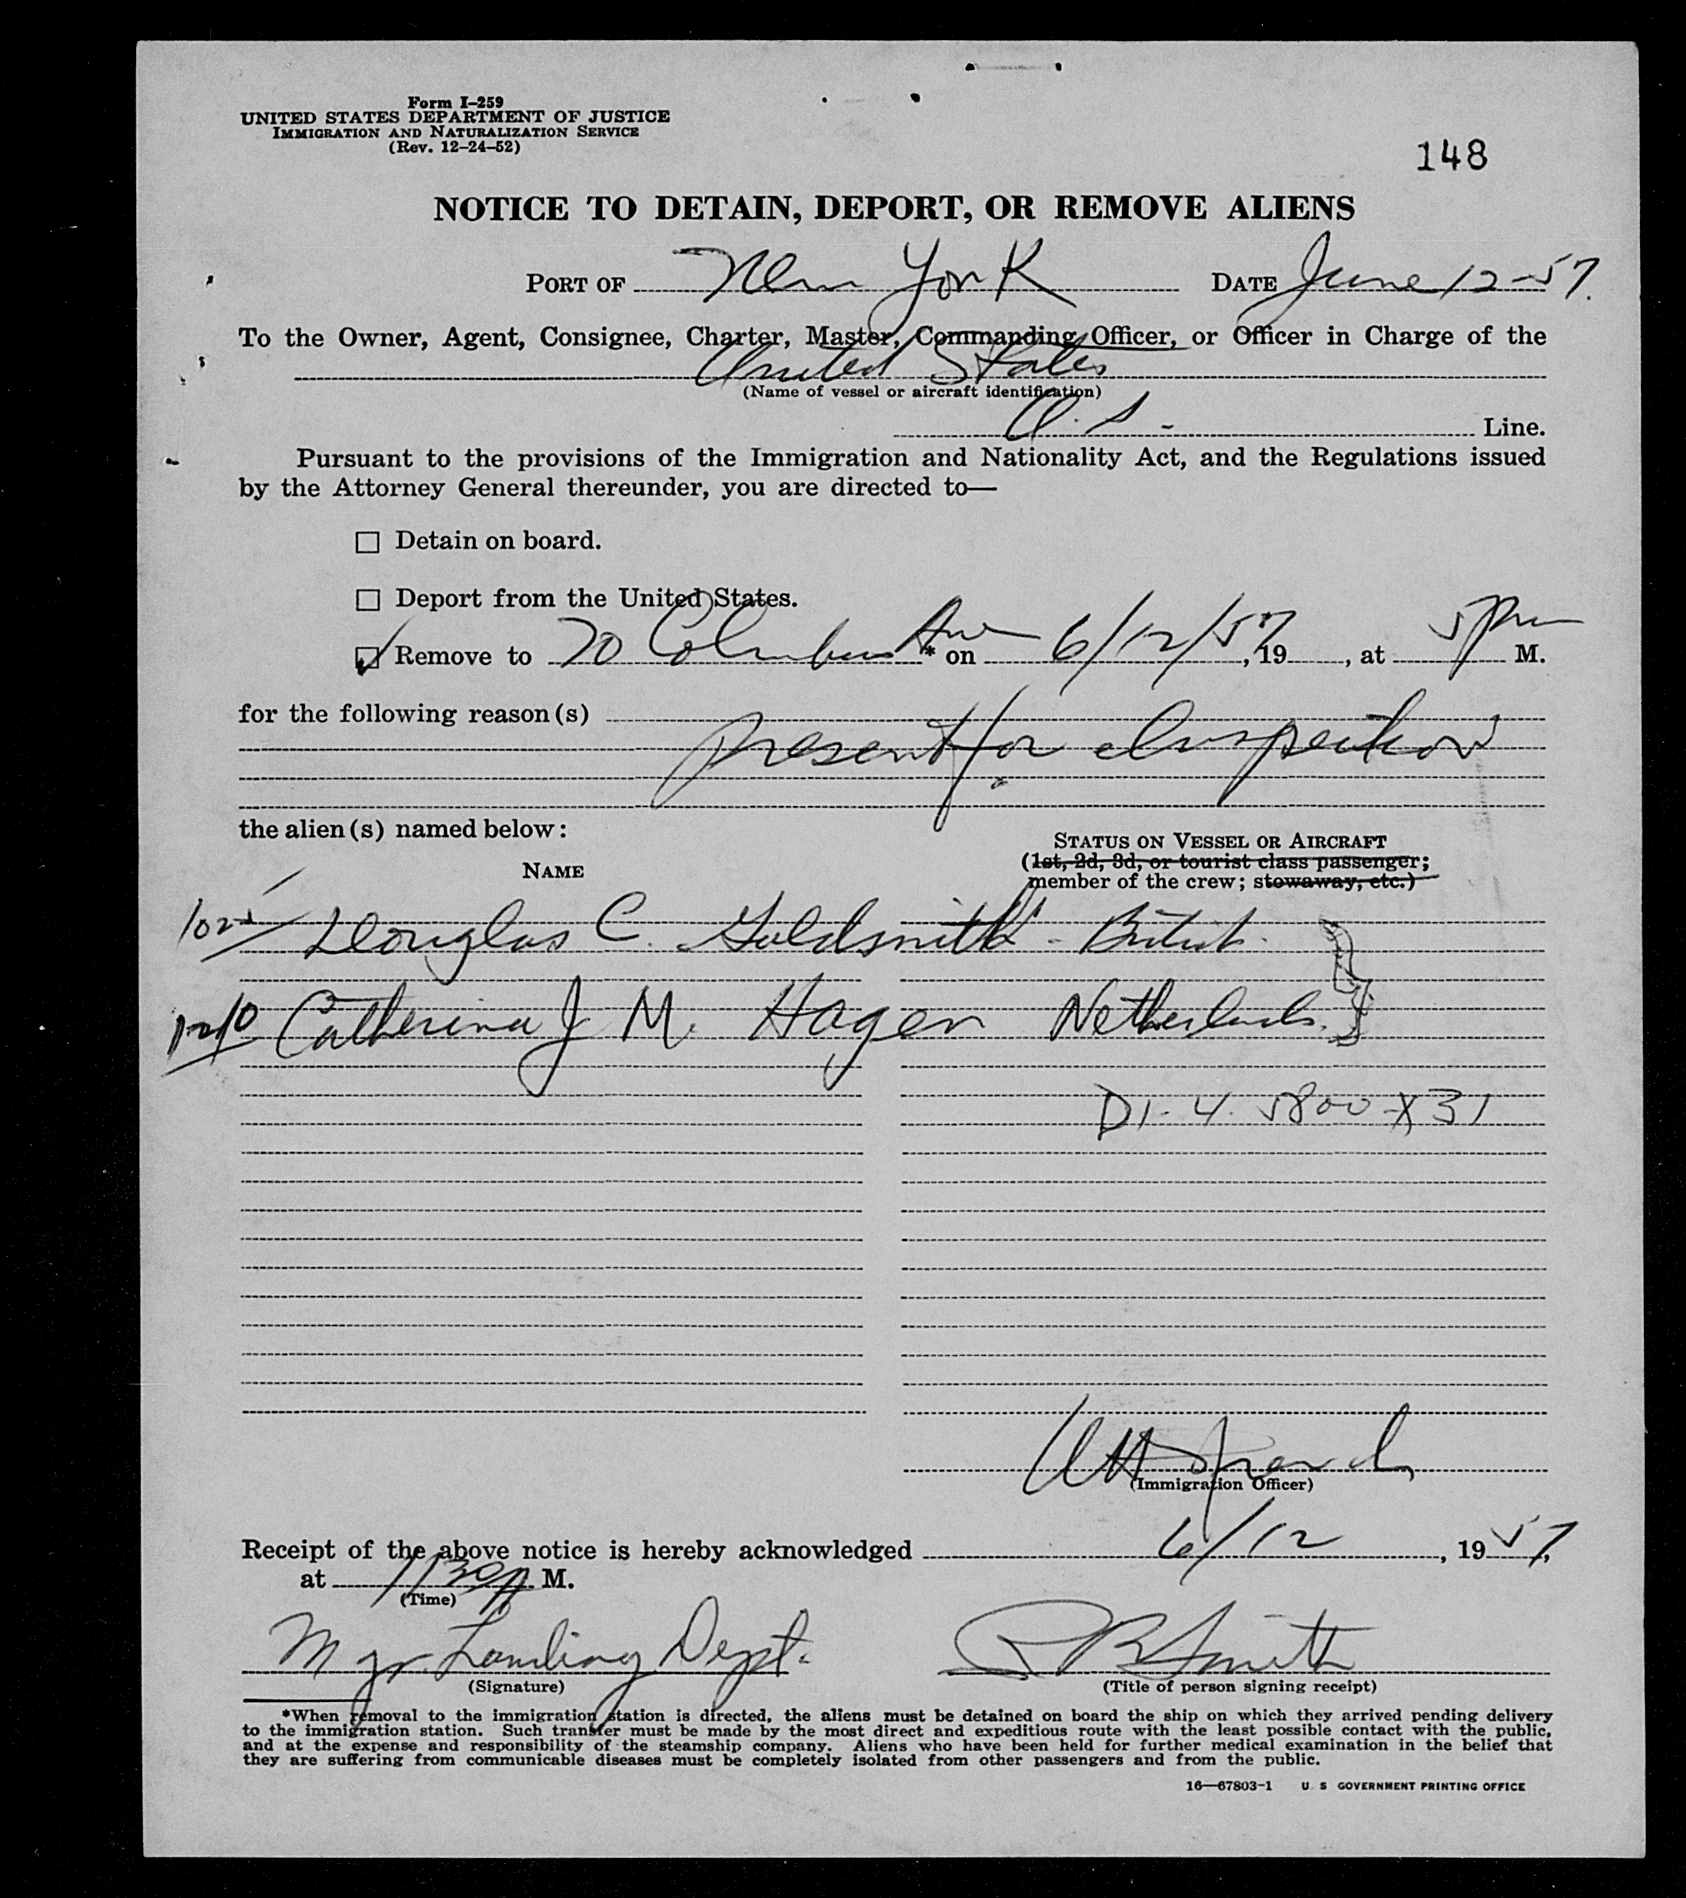 Form I-259
UNITED STATES DEPARTMENT OF JUSTICE
IMMIGRATION AND NATURALIZATION SERVICE
(Rev. 12-24-52)
148
NOTICE TO DETAIN, DEPORT, OR REMOVE ALIENS
PORT OF New York DATE June 12-57.
To the Owner, Agent, Consignee, Charter, Master, Commanding Officer, or Officer in Charge of the
United States
(Name of vessel or aircraft identification)
U.S. Line.
Pursuant to the provisions of the Immigration and Nationality Act, and the Regulations issued
by the Attorney General thereunder, you are directed to—
☐ Detain on board.
☐ Deport from the United States.
☑ Remove to 70 Columbus Ave * on 6/12/57, 19, at 5 Pm M.
for the following reason(s)
present for Inspection
the alien(s) named below:
NAME
STATUS ON VESSEL OR AIRCRAFT
(1st, 2d, 3d, or tourist class passenger;
member of the crew; stowaway, etc.)
Douglas C. Goldsmith - British
Catherina J M. Hagen Netherlands.
D1-4. 5800-X31
(Immigration Officer)
Receipt of the above notice is hereby acknowledged 6/12, 1957,
at 130p M.
(Time)
Mgr. Landing Dept.
(Signature)
Smith
(Title of person signing receipt)
*When removal to the immigration station is directed, the aliens must be detained on board the ship on which they arrived pending delivery
to the immigration station. Such transfer must be made by the most direct and expeditious route with the least possible contact with the public,
and at the expense and responsibility of the steamship company. Aliens who have been held for further medical examination in the belief that
they are suffering from communicable diseases must be completely isolated from other passengers and from the public.
16—67803-1 U S GOVERNMENT PRINTING OFFICE